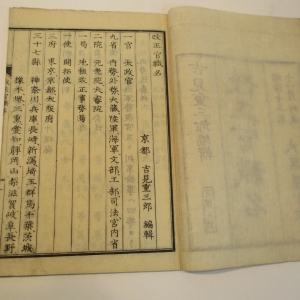 改正官職名
京都 吉見重三郎 編輯
一官 太政官
九省 内務外務大藏陸軍海軍文部工部司法宮内省
二院 元老院大審院
一局 地租改正事務局
一使 開拓使
三府 東京京都大阪府
三十七縣 神奈川兵庫長崎新潟埼玉群馬千葉茨城
栃木堺三重愛知靜岡山梨滋賀岐阜長野